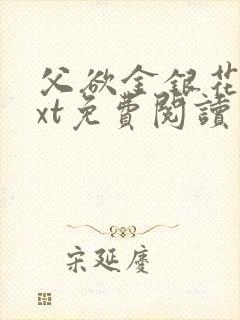 父欲金银花
xt免費閱讀
宋延慶